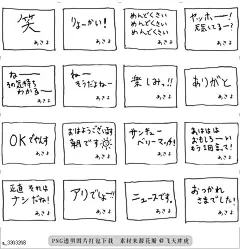 笑
あさよ
りょーかい!
あさよ
めんどくさい
めんどくさい
めんどくさい
あさよ
ヤッホー!
元気してるー?
あさよ
ねー
その気持ち
わかるー
あさよ
ねー
そうだよねー
あさよ
楽しみっ!!
あさよ
ありがと
あさよ
OKでやんす
あさよ
おはようございます
朝です
あさよ
サンキュー
ベリーマッチ!
あさよ
あははは
おもしろーい
もう1回言って!
あさよ
正直 それは
ナシだね!
あさよ
アリでしょ!!
あさよ
ニュースです。
あさよ
おつかれ
さまでした!
あさよ
PNG透明图片打包下载 素材来源花瓣@飞天胖虎